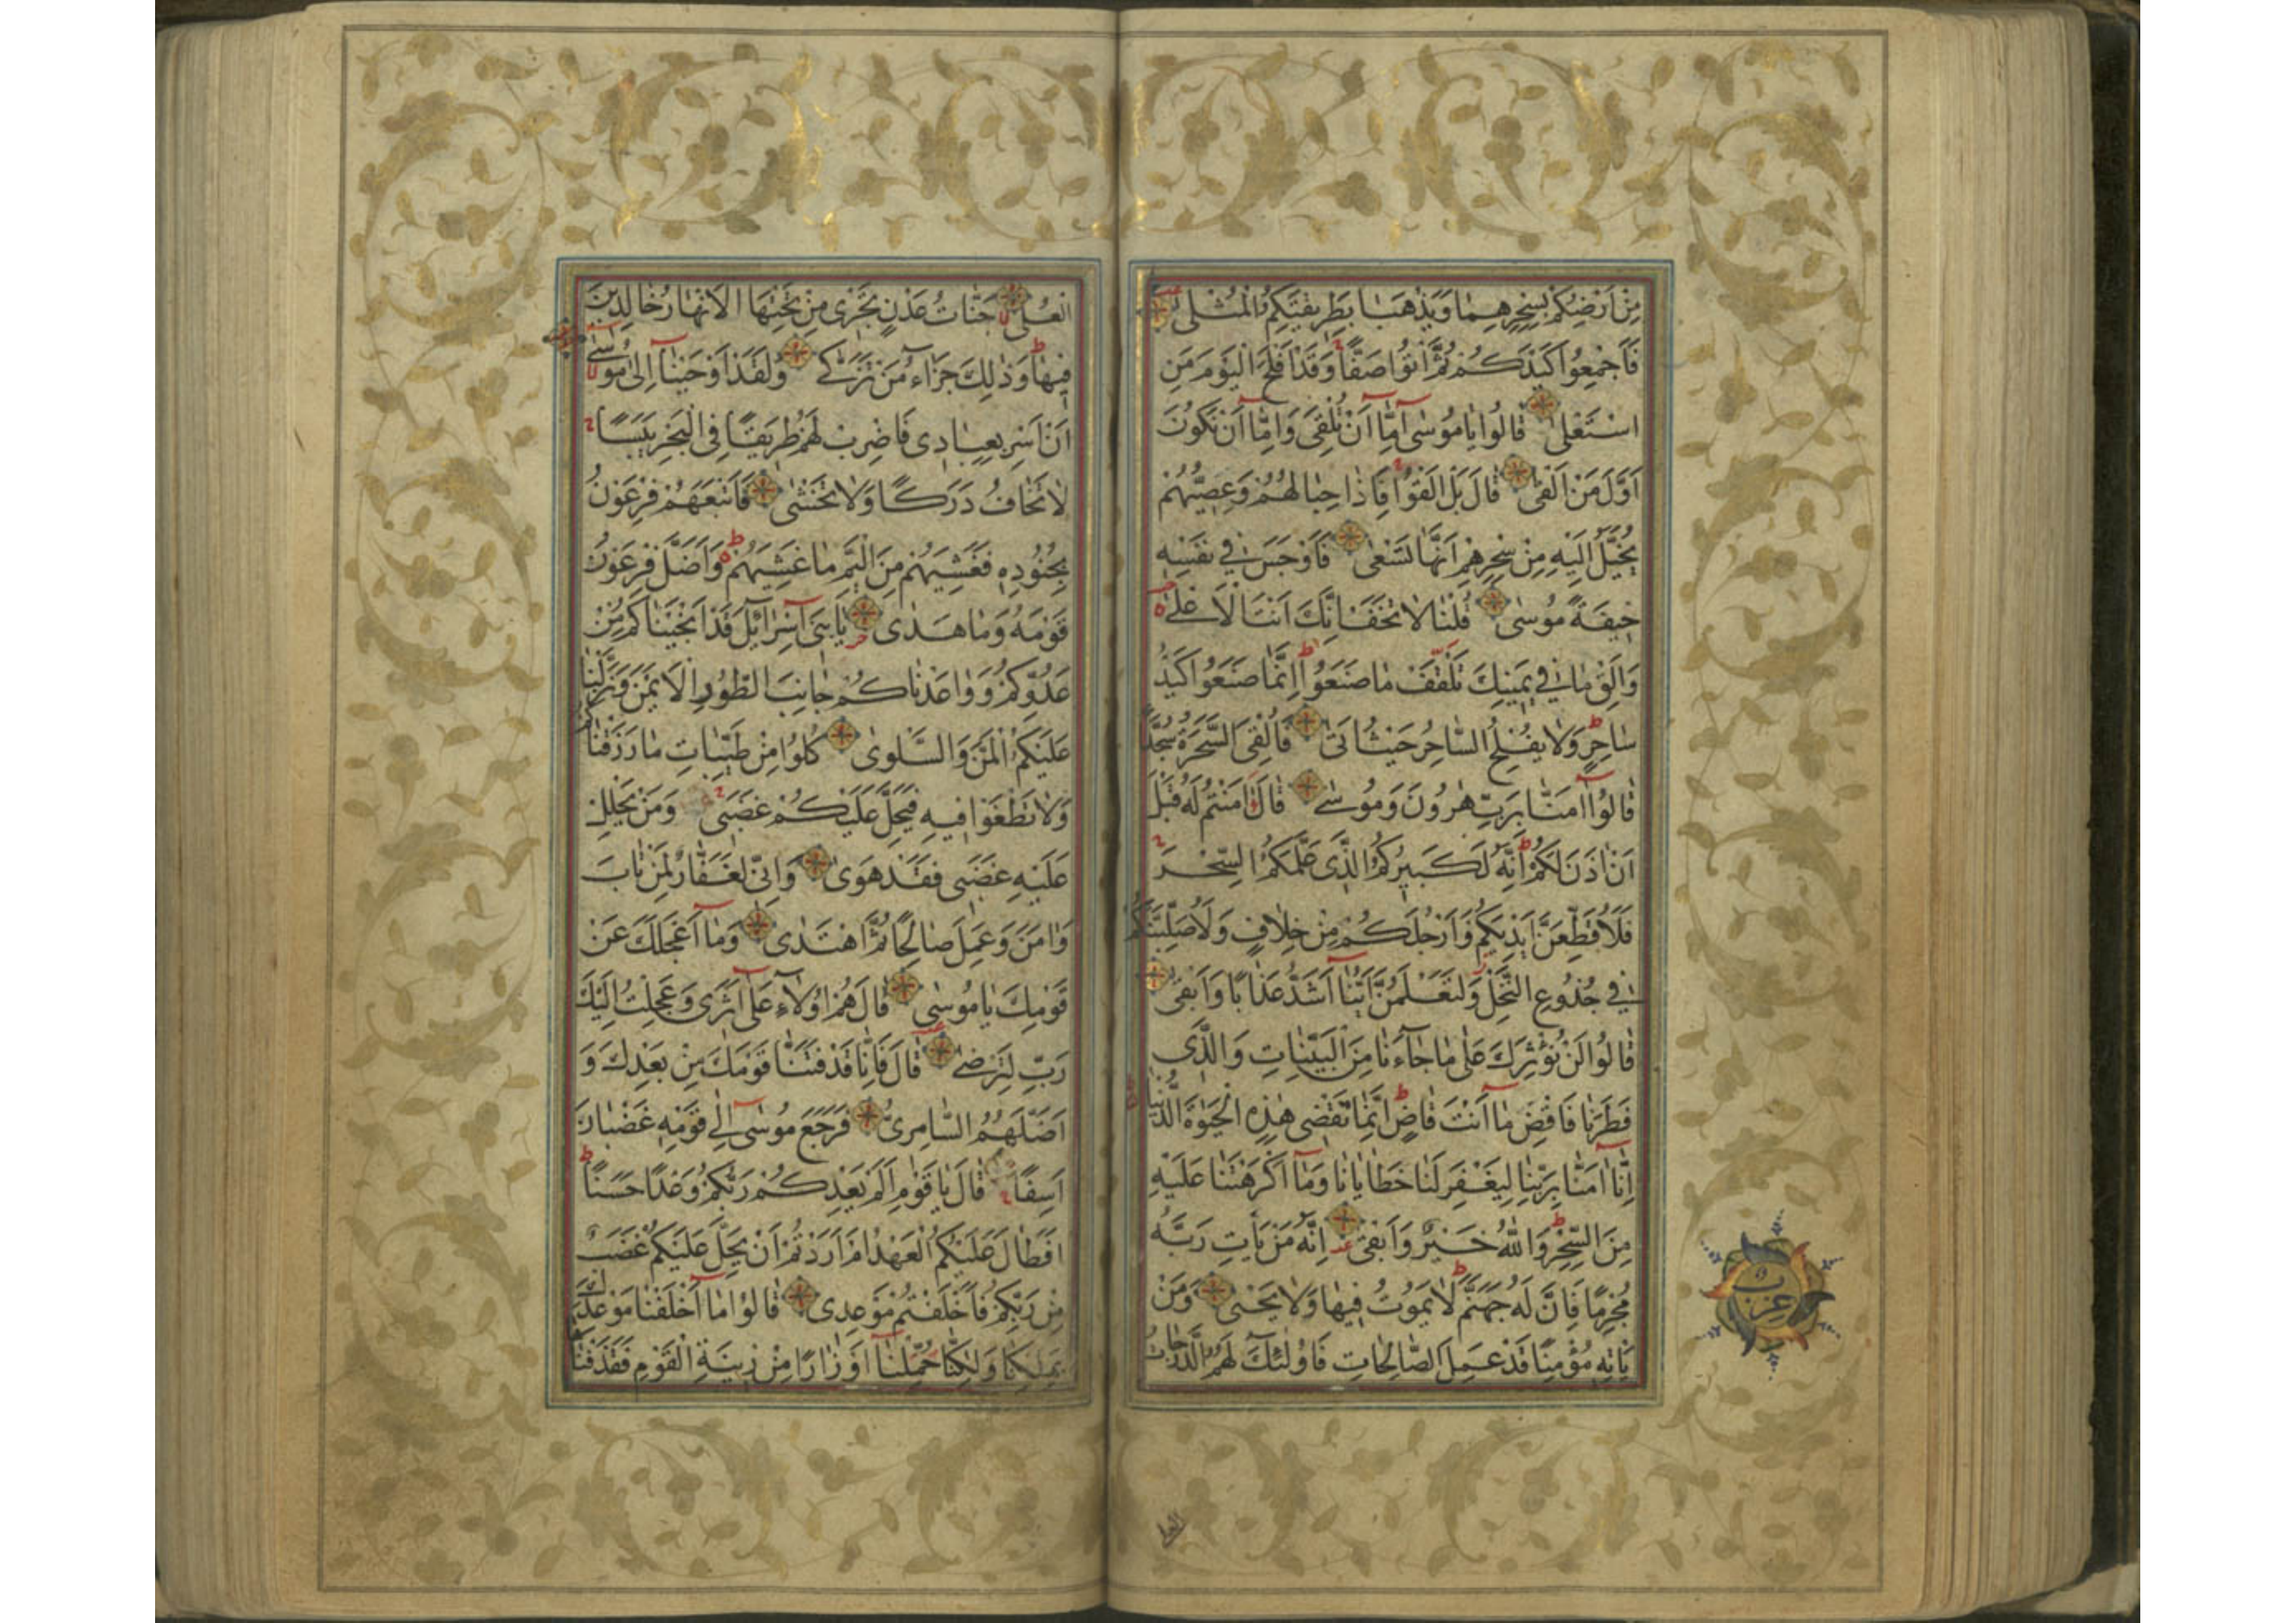 مِنْ اَرْضِكُمْ بِسِحْرِهِمَا وَيَذْهَبَا بِطَرِيقَتِكُمُ الْمُثْلٰى
فَاَجْمِعُوا كَيْدَكُمْ ثُمَّ ائْتُوا صَفًّا وَقَدْ اَفْلَحَ الْيَوْمَ مَنِ
اسْتَعْلٰى قَالُوا يَا مُوسٰى اِمَّا اَنْ تُلْقِىَ وَاِمَّا اَنْ نَكُونَ
اَوَّلَ مَنْ اَلْقٰى قَالَ بَلْ اَلْقُوا فَاِذَا حِبَالُهُمْ وَعِصِيُّهُمْ
يُخَيَّلُ اِلَيْهِ مِنْ سِحْرِهِمْ اَنَّهَا تَسْعٰى فَاَوْجَسَ فِي نَفْسِهِ
خِيفَةً مُوسٰى قُلْنَا لَا تَخَفْ اِنَّكَ اَنْتَ الْاَعْلٰى
وَاَلْقِ مَا فِي يَمِينِكَ تَلْقَفْ مَا صَنَعُوا اِنَّمَا صَنَعُوا كَيْدُ
سَاحِرٍ وَلَا يُفْلِحُ السَّاحِرُ حَيْثُ اَتٰى فَاُلْقِىَ السَّحَرَةُ سُجَّدًا
قَالُوا اٰمَنَّا بِرَبِّ هٰرُونَ وَمُوسٰى قَالَ اٰمَنْتُمْ لَهُ قَبْلَ
اَنْ اٰذَنَ لَكُمْ اِنَّهُ لَكَبِيرُكُمُ الَّذِى عَلَّمَكُمُ السِّحْرَ
فَلَاُقَطِّعَنَّ اَيْدِيَكُمْ وَاَرْجُلَكُمْ مِنْ خِلَافٍ وَلَاُصَلِّبَنَّكُمْ
فِي جُذُوعِ النَّخْلِ وَلَتَعْلَمُنَّ اَيُّنَا اَشَدُّ عَذَابًا وَاَبْقٰى
قَالُوا لَنْ نُؤْثِرَكَ عَلٰى مَا جَاءَنَا مِنَ الْبَيِّنَاتِ وَالَّذِى
فَطَرَنَا فَاقْضِ مَا اَنْتَ قَاضٍ اِنَّمَا تَقْضِى هٰذِهِ الْحَيٰوةَ الدُّنْيَا
اِنَّا اٰمَنَّا بِرَبِّنَا لِيَغْفِرَ لَنَا خَطَايَانَا وَمَا اَكْرَهْتَنَا عَلَيْهِ
مِنَ السِّحْرِ وَاللّٰهُ خَيْرٌ وَاَبْقٰى اِنَّهُ مَنْ يَأْتِ رَبَّهُ
مُجْرِمًا فَاِنَّ لَهُ جَهَنَّمَ لَا يَمُوتُ فِيهَا وَلَا يَحْيٰى وَمَنْ
يَأْتِهِ مُؤْمِنًا قَدْ عَمِلَ الصَّالِحَاتِ فَاُولٰئِكَ لَهُمُ الدَّرَجَاتُ
العلى
حزب
الْعُلٰى جَنَّاتُ عَدْنٍ تَجْرِى مِنْ تَحْتِهَا الْاَنْهَارُ خَالِدِينَ
فِيهَا وَذٰلِكَ جَزَاءُ مَنْ تَزَكّٰى وَلَقَدْ اَوْحَيْنَا اِلٰى مُوسٰى
اَنْ اَسْرِ بِعِبَادِى فَاضْرِبْ لَهُمْ طَرِيقًا فِى الْبَحْرِ يَبَسًا
لَا تَخَافُ دَرَكًا وَلَا تَخْشٰى فَاَتْبَعَهُمْ فِرْعَوْنُ
بِجُنُودِهِ فَغَشِيَهُمْ مِنَ الْيَمِّ مَا غَشِيَهُمْ وَاَضَلَّ فِرْعَوْنُ
قَوْمَهُ وَمَا هَدٰى يَا بَنِى اِسْرَائِلَ قَدْ اَنْجَيْنَاكُمْ مِنْ
عَدُوِّكُمْ وَوَاعَدْنَاكُمْ جَانِبَ الطُّورِ الْاَيْمَنَ وَنَزَّلْنَا
عَلَيْكُمُ الْمَنَّ وَالسَّلْوٰى كُلُوا مِنْ طَيِّبَاتِ مَا رَزَقْنَاكُمْ
وَلَا تَطْغَوْا فِيهِ فَيَحِلَّ عَلَيْكُمْ غَضَبِى وَمَنْ يَحْلِلْ
عَلَيْهِ غَضَبِى فَقَدْ هَوٰى وَاِنِّى لَغَفَّارٌ لِمَنْ تَابَ
وَاٰمَنَ وَعَمِلَ صَالِحًا ثُمَّ اهْتَدٰى وَمَا اَعْجَلَكَ عَنْ
قَوْمِكَ يَا مُوسٰى قَالَ هُمْ اُولَاءِ عَلٰى اَثَرِى وَعَجِلْتُ اِلَيْكَ
رَبِّ لِتَرْضٰى قَالَ فَاِنَّا قَدْ فَتَنَّا قَوْمَكَ مِنْ بَعْدِكَ وَ
اَضَلَّهُمُ السَّامِرِىُّ فَرَجَعَ مُوسٰى اِلٰى قَوْمِهِ غَضْبَانَ
اَسِفًا قَالَ يَا قَوْمِ اَلَمْ يَعِدْكُمْ رَبُّكُمْ وَعْدًا حَسَنًا
اَفَطَالَ عَلَيْكُمُ الْعَهْدُ اَمْ اَرَدْتُمْ اَنْ يَحِلَّ عَلَيْكُمْ غَضَبٌ
مِنْ رَبِّكُمْ فَاَخْلَفْتُمْ مَوْعِدِى قَالُوا مَا اَخْلَفْنَا مَوْعِدَكَ
بِمَلْكِنَا وَلٰكِنَّا حُمِّلْنَا اَوْزَارًا مِنْ زِينَةِ الْقَوْمِ فَقَذَفْنَاهَا